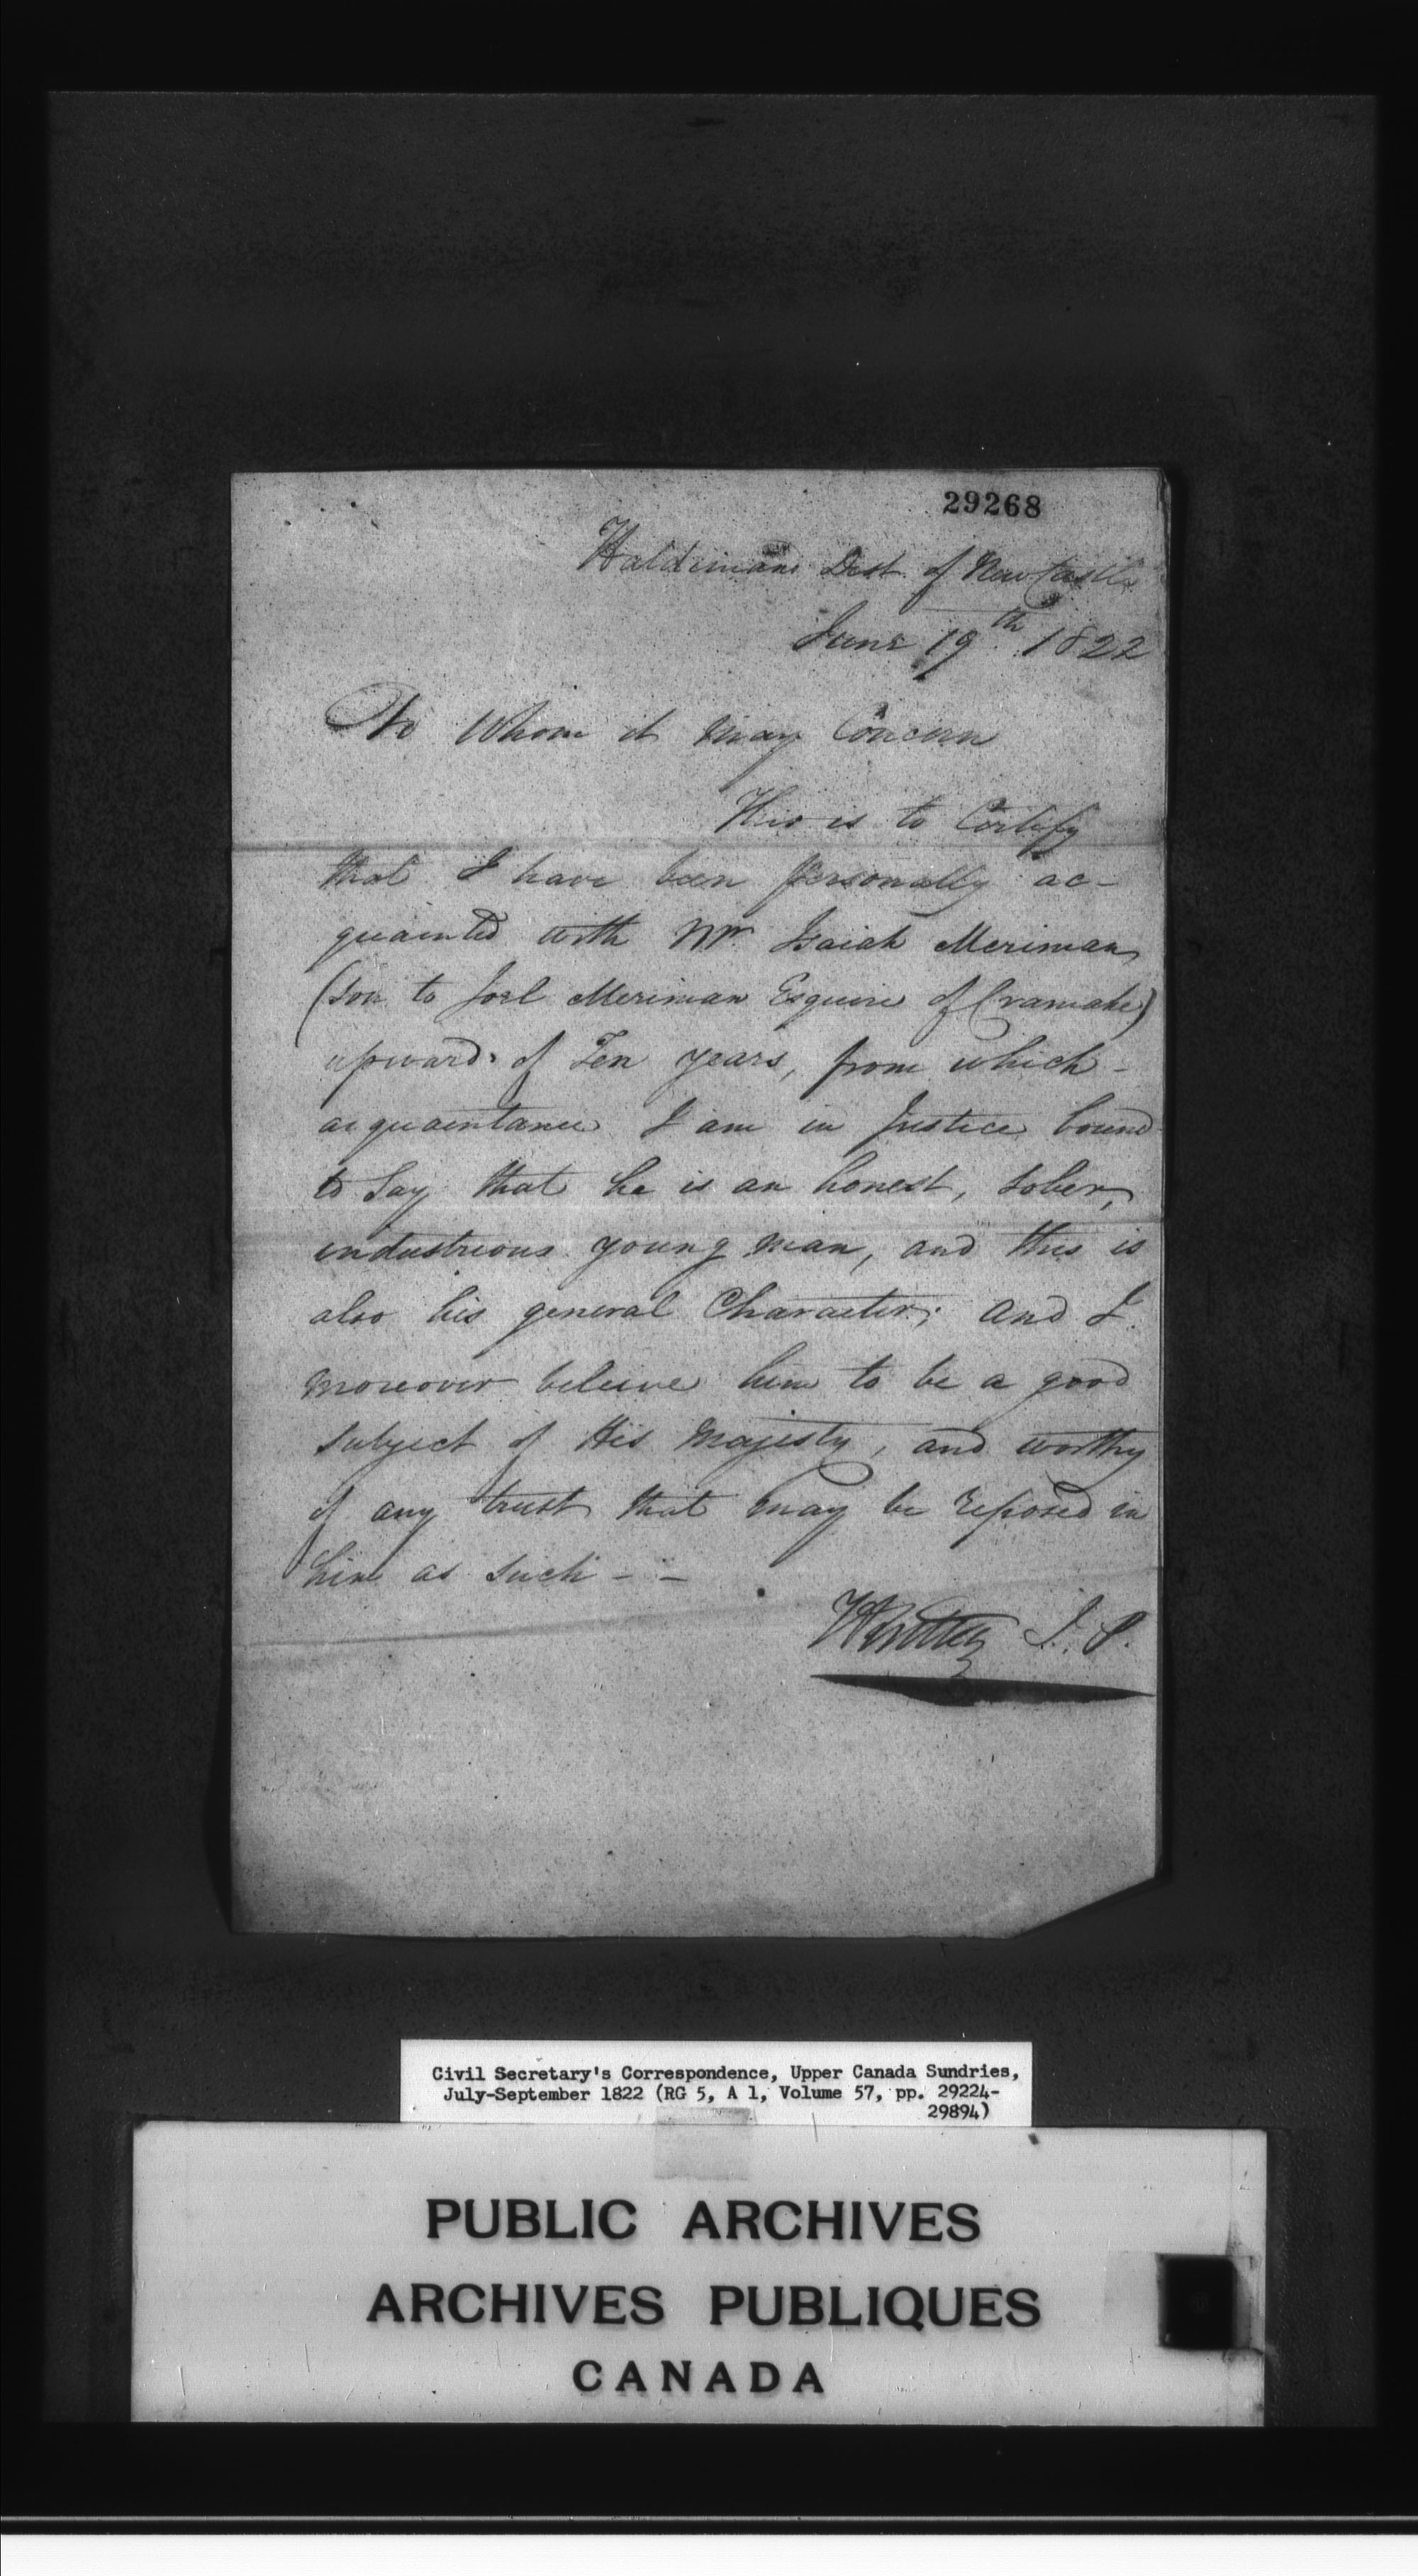 29268
Haldimand Dist. of NewCastle
June 19th 1822
To Whom it may Concern
This is to Certify
that I have been personally ac-
quainted with Mr. Isaiah Meriman
(son to Joel Meriman Esquire of Cramahe)
upwards of Ten years, from which -
acquaintance I am in Justice bound
to Say that he is an honest, sober,
industrious young man, and this is
also his general Character; and I
moreover beleive him to be a good
subject of His Majesty, and worthy
of any trust that may be reposed in
him as such - -
J. P.
Civil Secretary's Correspondence, Upper Canada Sundries,
July-September 1822 (RG 5, A 1, Volume 57, pp. 29224-
29894)
PUBLIC ARCHIVES
ARCHIVES PUBLIQUES
CANADA